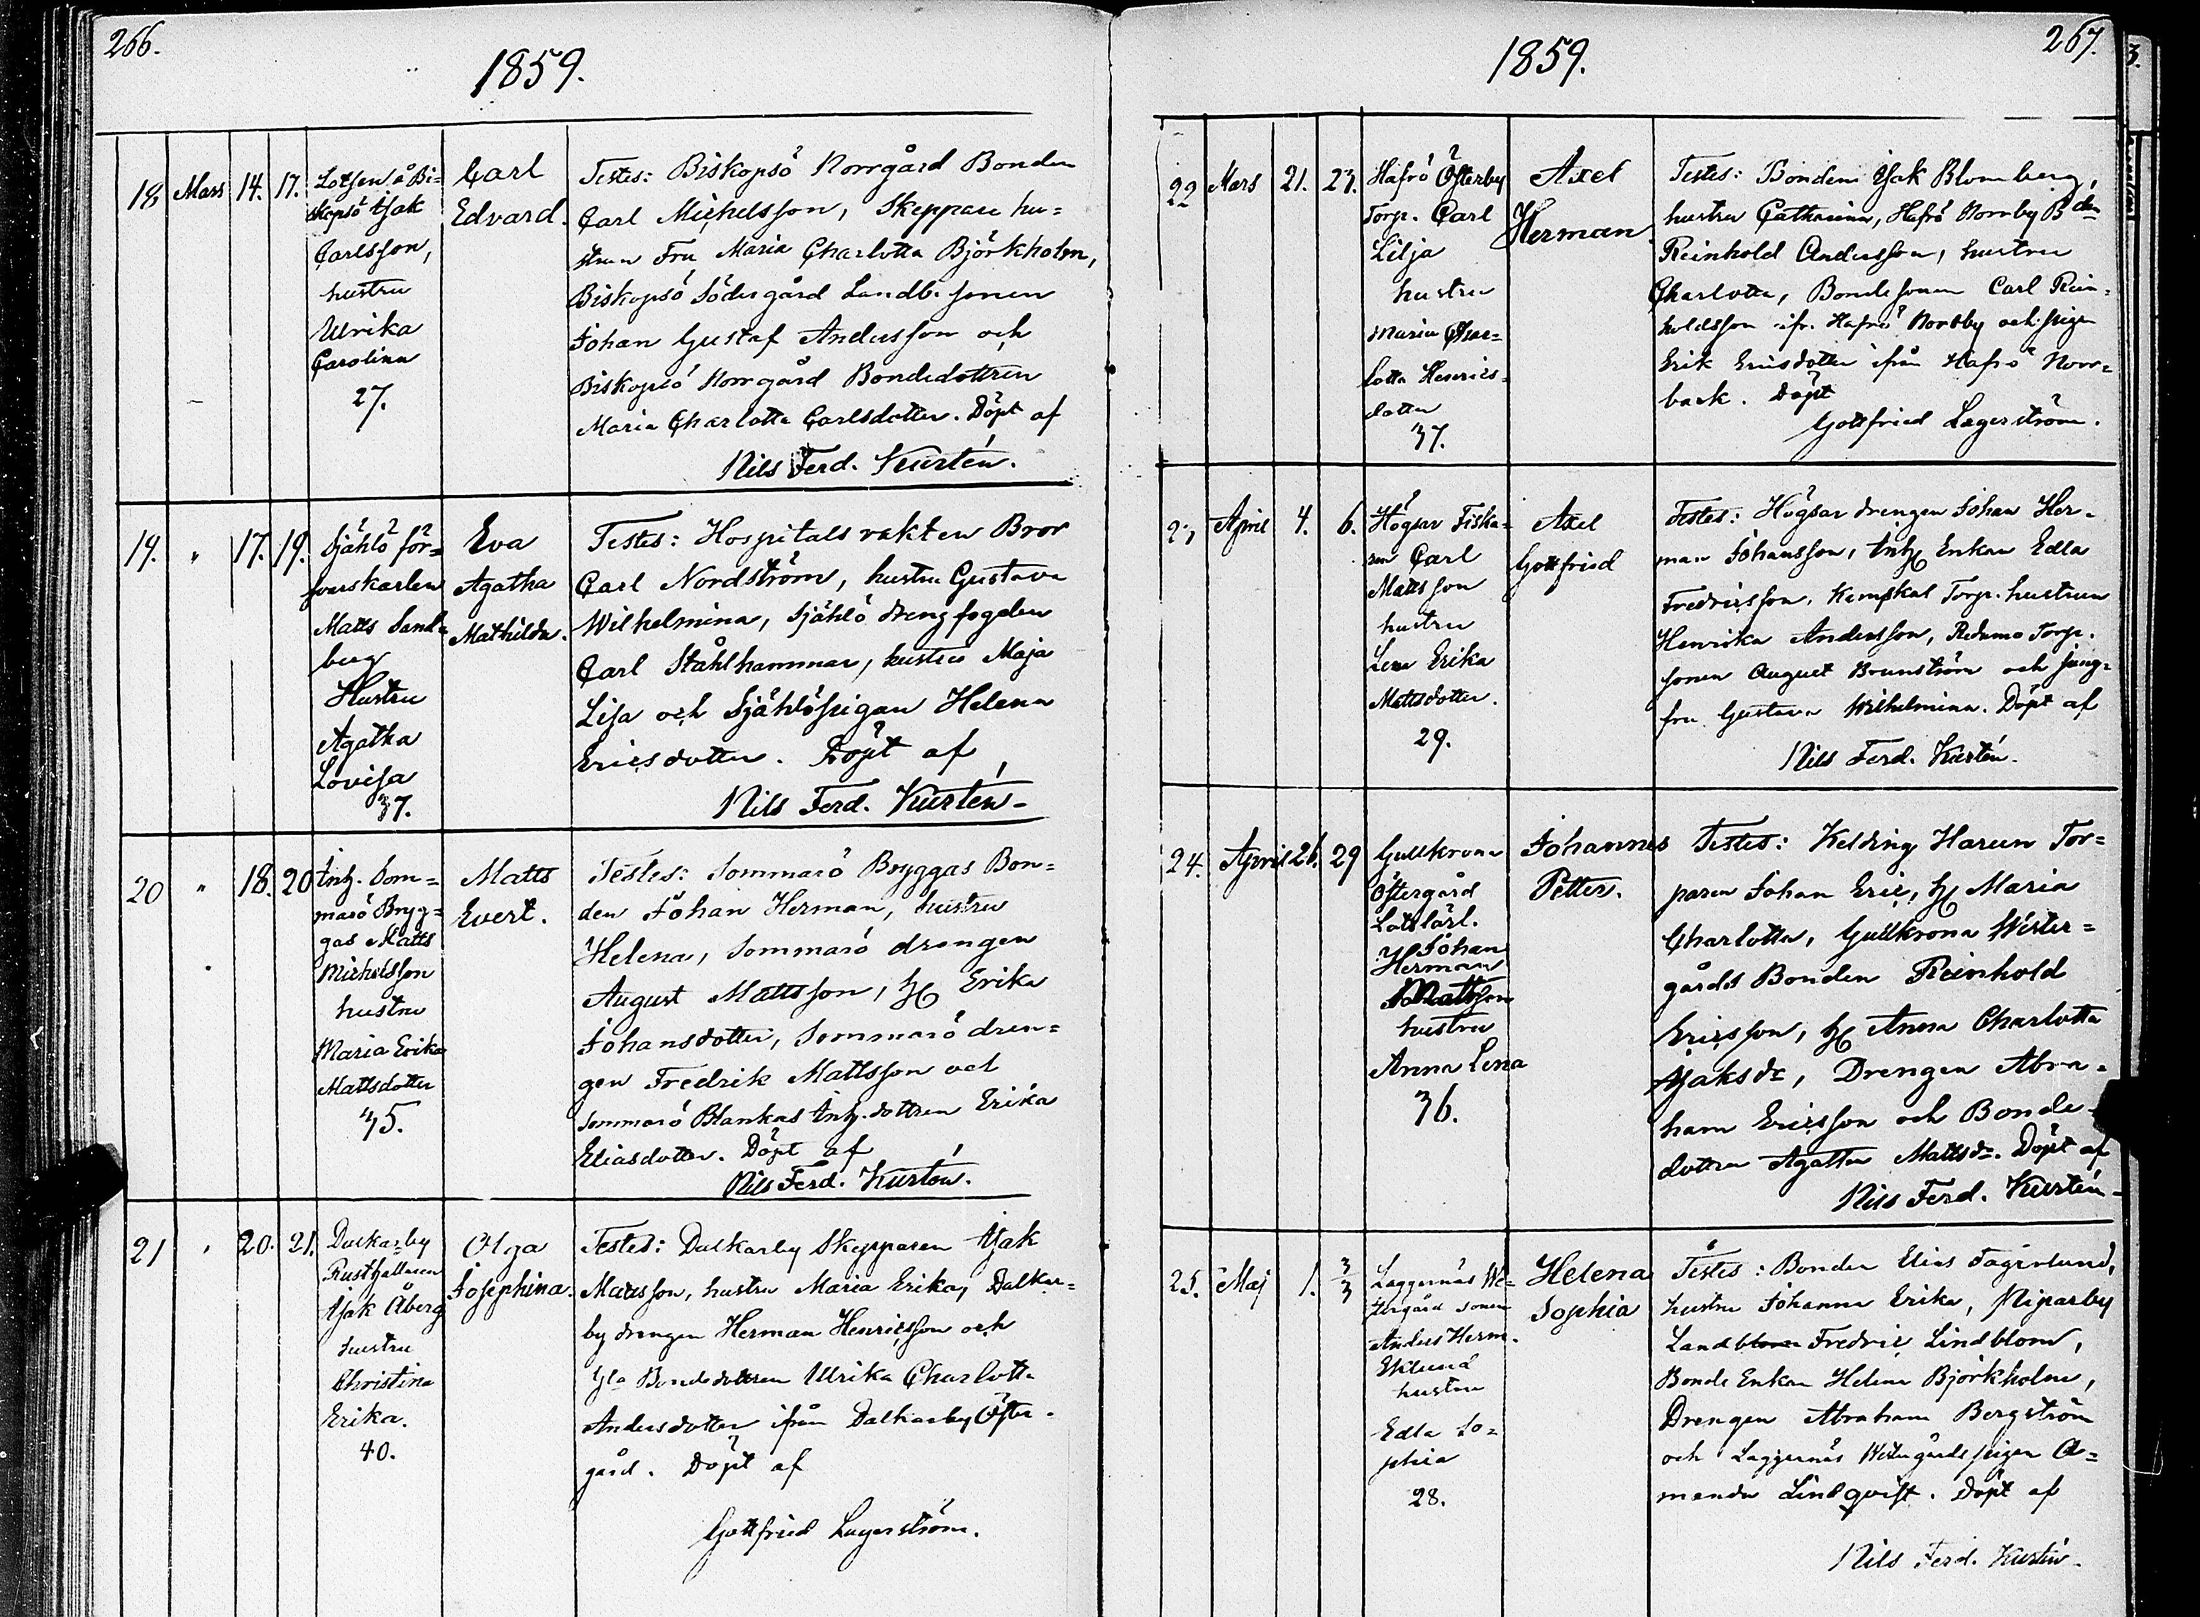 266.
1859.
18 Mars 14. 17.
Lotsen å Bi=
skopsö Isak
Carlsson,
hustru
Ulrika
Carolina
27.
Carl
Edvard.
Testes: Biskopsö Norrgård Bonden
Carl Michelsson, Skeppare hu=
strun Fru Maria Charlotta Björkholm,
Biskopsö Södergård Landb. sonen
Johan Gustaf Andersson och
Biskopsö Norrgård Bondedottren
Maria Charlotta Carlsdotter. Döpt af
Nils Ferd. Kurtén.
19. " 17. 19.
Själö för=
svarskarlen
Matts Sand=
berg
Hustru
Agatha
Lovisa
37.
Eva
Agatha
Mathilda.
Testes: Hospitals vakten Bror
Carl Nordström, hustru Gustava
Wilhelmina, Själö drengfogden
Carl Stålhammar, hustru Maja
Lisa och Själöpigan Helena
Ericsdotter. Döpt af
Nils Ferd. Kurtén.
20 " 18. 20
Inh. Som=
marö Bryg=
gas Matts
Michelsson
hustru
Maria Erika
Mattsdotter
35.
Matts
Evert.
Testes: Sommarö Bryggas Bon=
den Johan Herman, hustru
Helena, Sommarö drengen
August Mattsson, H Erika
Johansdotter, Sommarö dren=
gen Fredrik Mattsson och
Sommarö Blankas Inh. dottren Erika
Eliasdotter. Döpt af
Nils Ferd. Kurtén.
21 " 20. 21.
Dalkarby
Rusthållaren
Isak Åberg
hustru
Christina
Erika.
40.
Olga
Josephina.
Testes: Dalkarby Skepparen Isak
Mattsson, hustru Maria Erika, Dalkar=
by drengen Herman Henricsson och
Bondedottren Ulrika Charlotta
Andersdotter ifrån Dalkarby Öster=
gård. Döpt af
Gottfried Lagerström.
267.
1859.
22 Mars 21. 23.
Hafrö Österby
Torp. Carl
Lilja
hustru
Maria Char=
lotta Henrics=
dotter
37.
Axel
Herman.
Testes: Bonden Isak Blomberg,
hustru Catharina, Hafrö Norrby Bden
Reinhold Andersson, hustru
Charlotta, Bondesonen Carl Rein=
holdsson ifr. Hafrö Norrby och pigan
Erik Ericsdotter ifrån Hafrö Norr=
back. Döpt
Gottfried Lagerström.
23 April 4. 6.
Högsar Fiska=
ren Carl
Mattsson
hustru
Lena Erika
Mattsdotter.
29.
Axel
Gottfried
Testes: Högsar drengen Johan Her=
man Johansson, Inh Enkan Edla
Fredricsson, Torp. hustrun
Henrika Andersson, Torp.
sonen August Brunström och jung=
fru Gustava Wilhelmina. Döpt af
Nils Ferd. Kurtén.
24. April 26. 29
Gullkrona
Östergård
Lotslärl.
Johan
Herman
Mattsson
hustru
Anna Lena
36.
Johannes
Petter.
Testes: Kelding Harun Tor=
paren Johan Eric, H Maria
Charlotta, Gullkrona Wester=
gårds Bonden Reinhold
Ericsson, H Anna Charlotta
Isaksdr, Drengen Abra=
ham Ericsson och Bonde=
dottren Agatha Mattsdr. Döpt af
Nils Ferd. Kurtén.
25. Maj 1. 3/3
Laggarnäs We=
stergård sonen
Anders Herm.
Eklund
hustru
Edla So=
phia
28.
Helena
Sophia
Testes: Bonden Elias Fagerlund,
hustru Johanna Erika, Piparby
Landb Fredric Lindblom,
Bonde Enkan Helena Björkholm,
Drengen Abraham Bergström
och Laggarnäs Westergårds pigan A=
manda Lindqvist. Döpt af
Nils Ferd. Kurtén.
3.